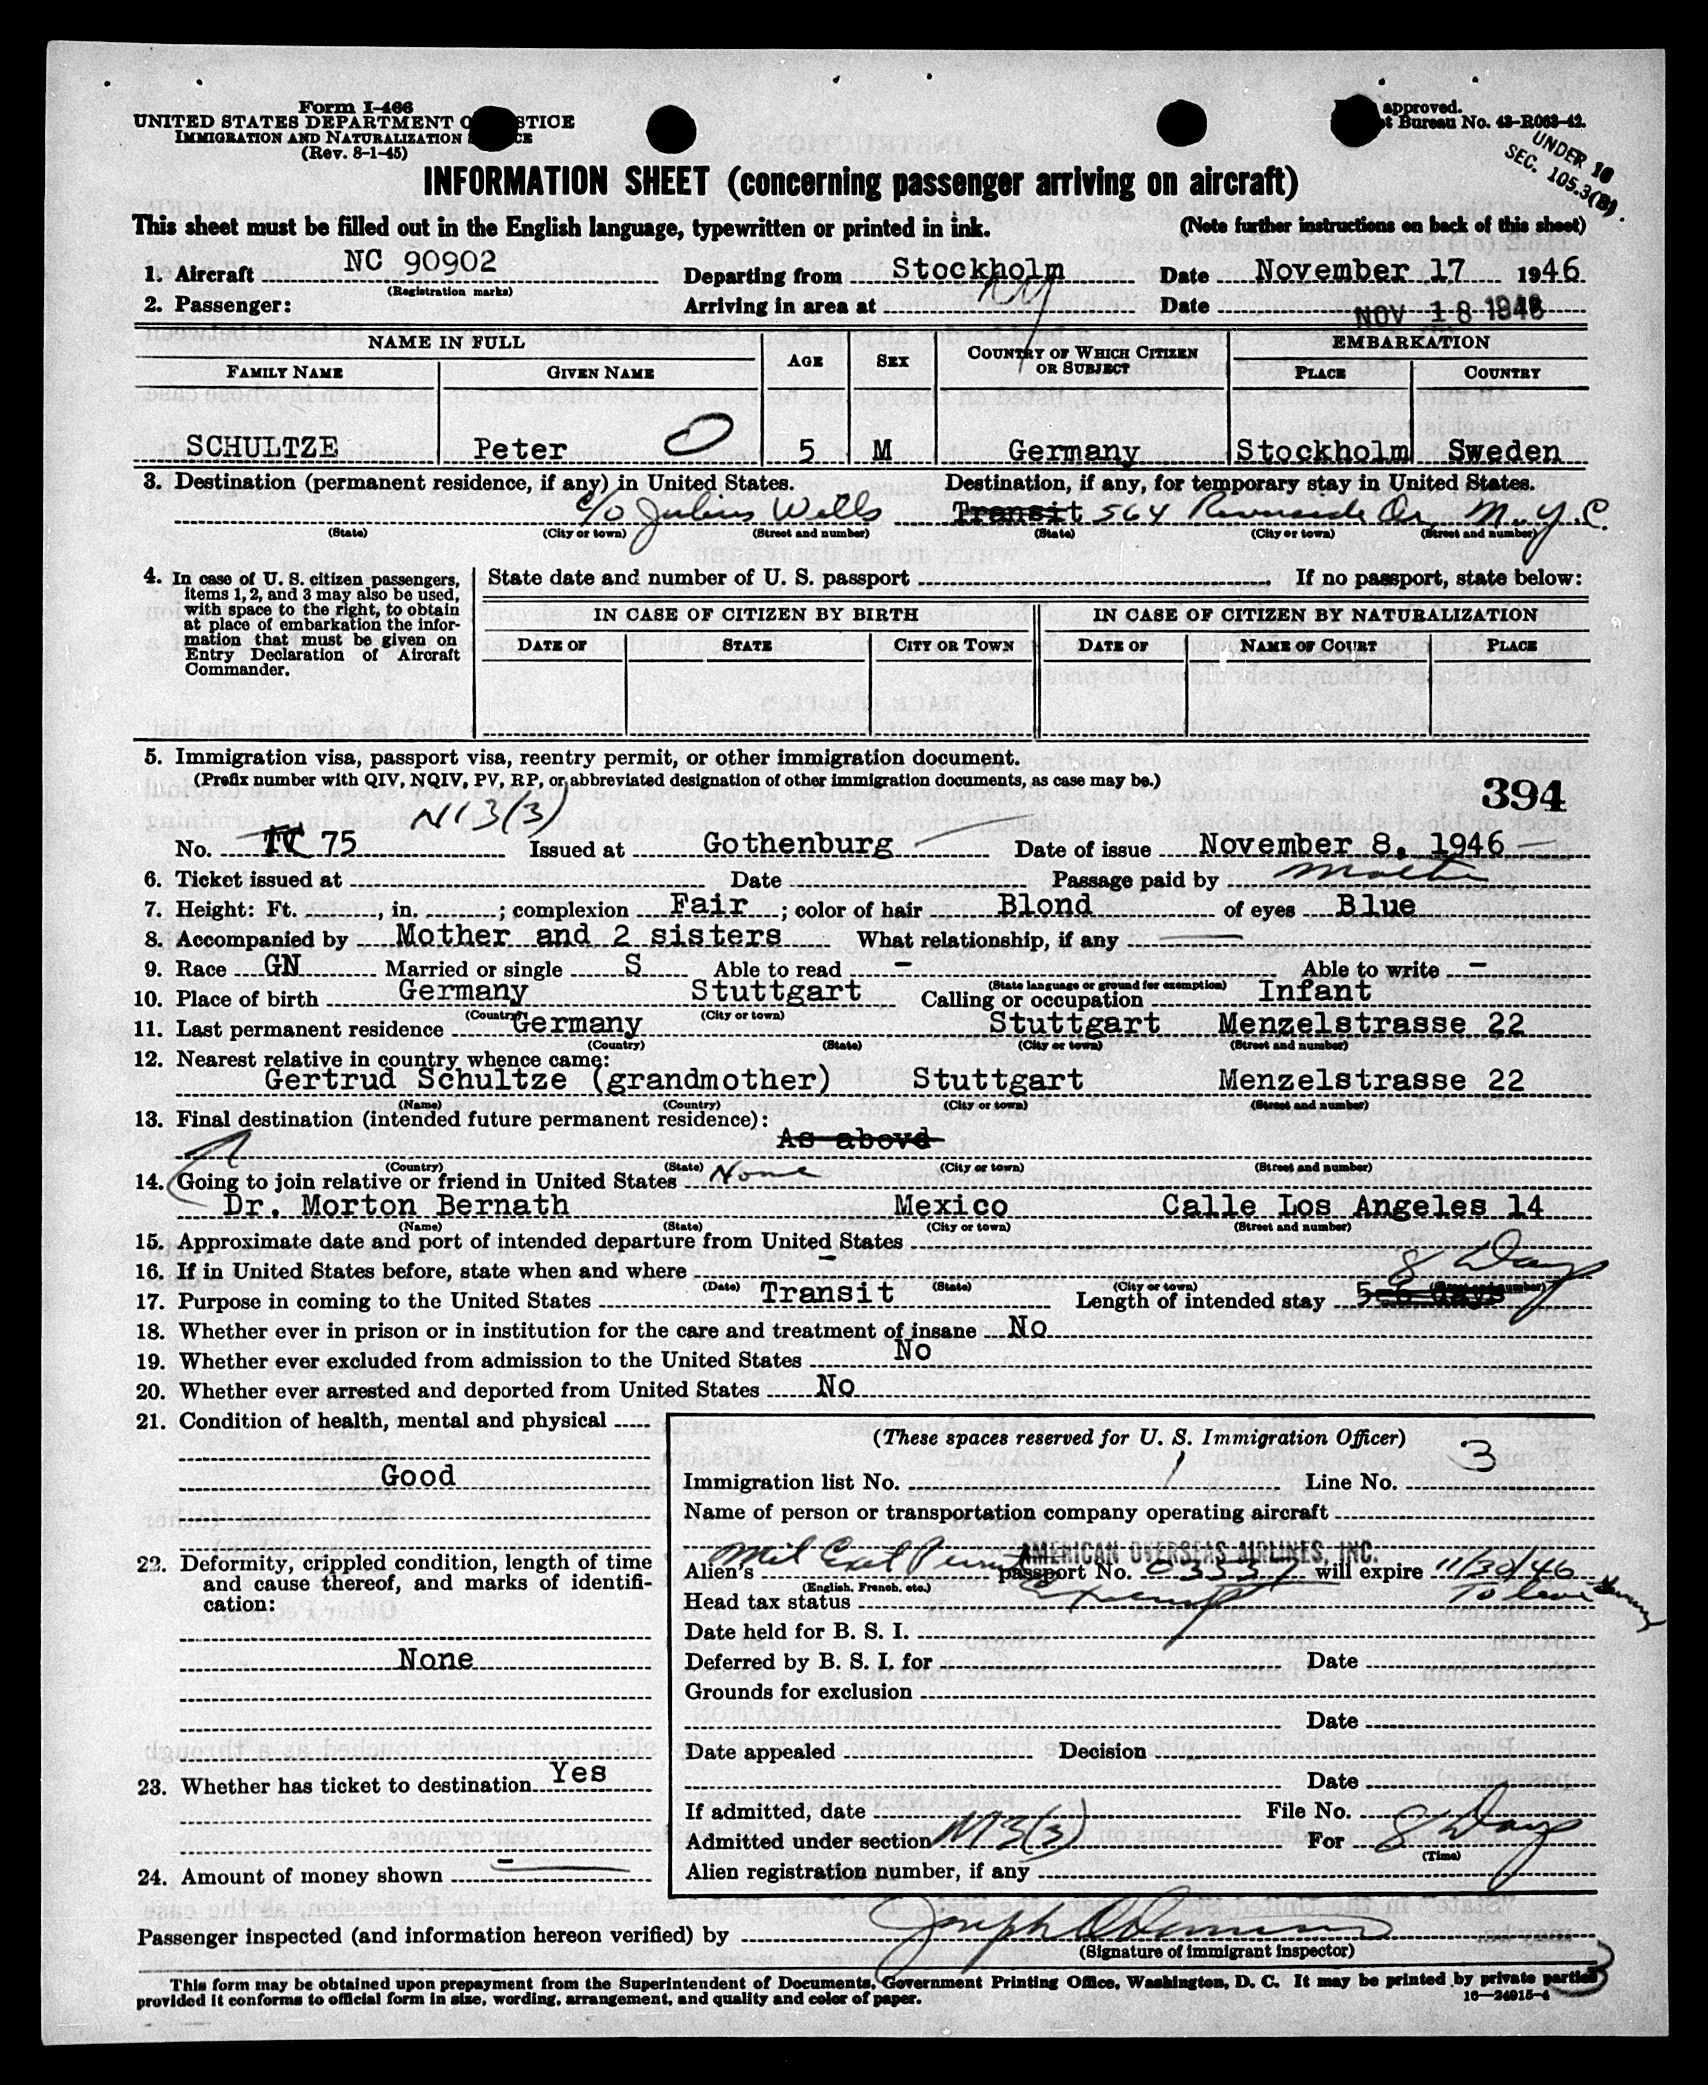 Form I-466
UNITED STATES DEPARTMENT O STICE
IMMIGRATION AND NATURALIZATION S CE
(Rev. 8-1-45)
approved.
t Bureau No. 43-R063-42.
UNDER 16
SEC. 105.3(B).
INFORMATION SHEET (concerning passenger arriving on aircraft)
This sheet must be filled out in the English language, typewritten or printed in ink. (Note further instructions on back of this sheet)
1. Aircraft NC 90902 Departing from Stockholm Date November 17 1946
(Registration marks)
2. Passenger: Arriving in area at NY Date NOV 18 1946
NAME IN FULL AGE SEX COUNTRY OF WHICH CITIZEN OR SUBJECT EMBARKATION
FAMILY NAME GIVEN NAME PLACE COUNTRY
SCHULTZE Peter 5 M Germany Stockholm Sweden
3. Destination (permanent residence, if any) in United States. Destination, if any, for temporary stay in United States.
c/o Julius Wells Transit 564 Riverside Dr. N.Y.C.
(State) (City or town) (Street and number) (State) (City or town) (Street and number)
4. In case of U. S. citizen passengers, items 1, 2, and 3 may also be used, with space to the right, to obtain at place of embarkation the information that must be given on Entry Declaration of Aircraft Commander.
State date and number of U. S. passport . If no passport, state below:
IN CASE OF CITIZEN BY BIRTH IN CASE OF CITIZEN BY NATURALIZATION
DATE OF STATE CITY OR TOWN DATE OF NAME OF COURT PLACE
5. Immigration visa, passport visa, reentry permit, or other immigration document.
(Prefix number with QIV, NQIV, PV, RP, or abbreviated designation of other immigration documents, as case may be.)
394
N13(3)
No. TV 75 Issued at Gothenburg Date of issue November 8, 1946
6. Ticket issued at Date Passage paid by Mother
7. Height: Ft. , in. ; complexion Fair ; color of hair Blond of eyes Blue
8. Accompanied by Mother and 2 sisters What relationship, if any
9. Race GN Married or single S Able to read - Able to write -
(State language or ground for exemption)
10. Place of birth Germany Stuttgart Calling or occupation Infant
(Country) (City or town)
11. Last permanent residence Germany Stuttgart Menzelstrasse 22
(Country) (State) (City or town) (Street and number)
12. Nearest relative in country whence came:
Gertrud Schultze (grandmother) Stuttgart Menzelstrasse 22
(Name) (Country) (City or town) (Street and number)
13. Final destination (intended future permanent residence):
As above
(Country) (State) (City or town) (Street and number)
14. Going to join relative or friend in United States None
Dr. Morton Bernath Mexico Calle Los Angeles 14
(Name) (State) (City or town) (Street and number)
15. Approximate date and port of intended departure from United States
16. If in United States before, state when and where -
(Date) (State) (City or town) (Street and number)
8 Days
17. Purpose in coming to the United States Transit Length of intended stay 5-6 days
18. Whether ever in prison or in institution for the care and treatment of insane No
19. Whether ever excluded from admission to the United States No
20. Whether ever arrested and deported from United States No
21. Condition of health, mental and physical
Good
22. Deformity, crippled condition, length of time and cause thereof, and marks of identification:
None
23. Whether has ticket to destination Yes
24. Amount of money shown -
(These spaces reserved for U. S. Immigration Officer)
Immigration list No. 1 Line No. 3
Name of person or transportation company operating aircraft
AMERICAN OVERSEAS AIRLINES, INC.
Alien's Mil Exit Permit passport No. 03557 will expire 11/30/46
(English, French, etc.)
Head tax status Exempt To leave Germany
Date held for B. S. I.
Deferred by B. S. I. for Date
Grounds for exclusion
Date
Date appealed Decision
Date
If admitted, date File No.
Admitted under section N13(3) For 8 Days
(Time)
Alien registration number, if any
Passenger inspected (and information hereon verified) by Joseph
(Signature of immigrant inspector)
This form may be obtained upon prepayment from the Superintendent of Documents, Government Printing Office, Washington, D. C. It may be printed by private parties
provided it conforms to official form in size, wording, arrangement, and quality and color of paper.
16—24915-4
3